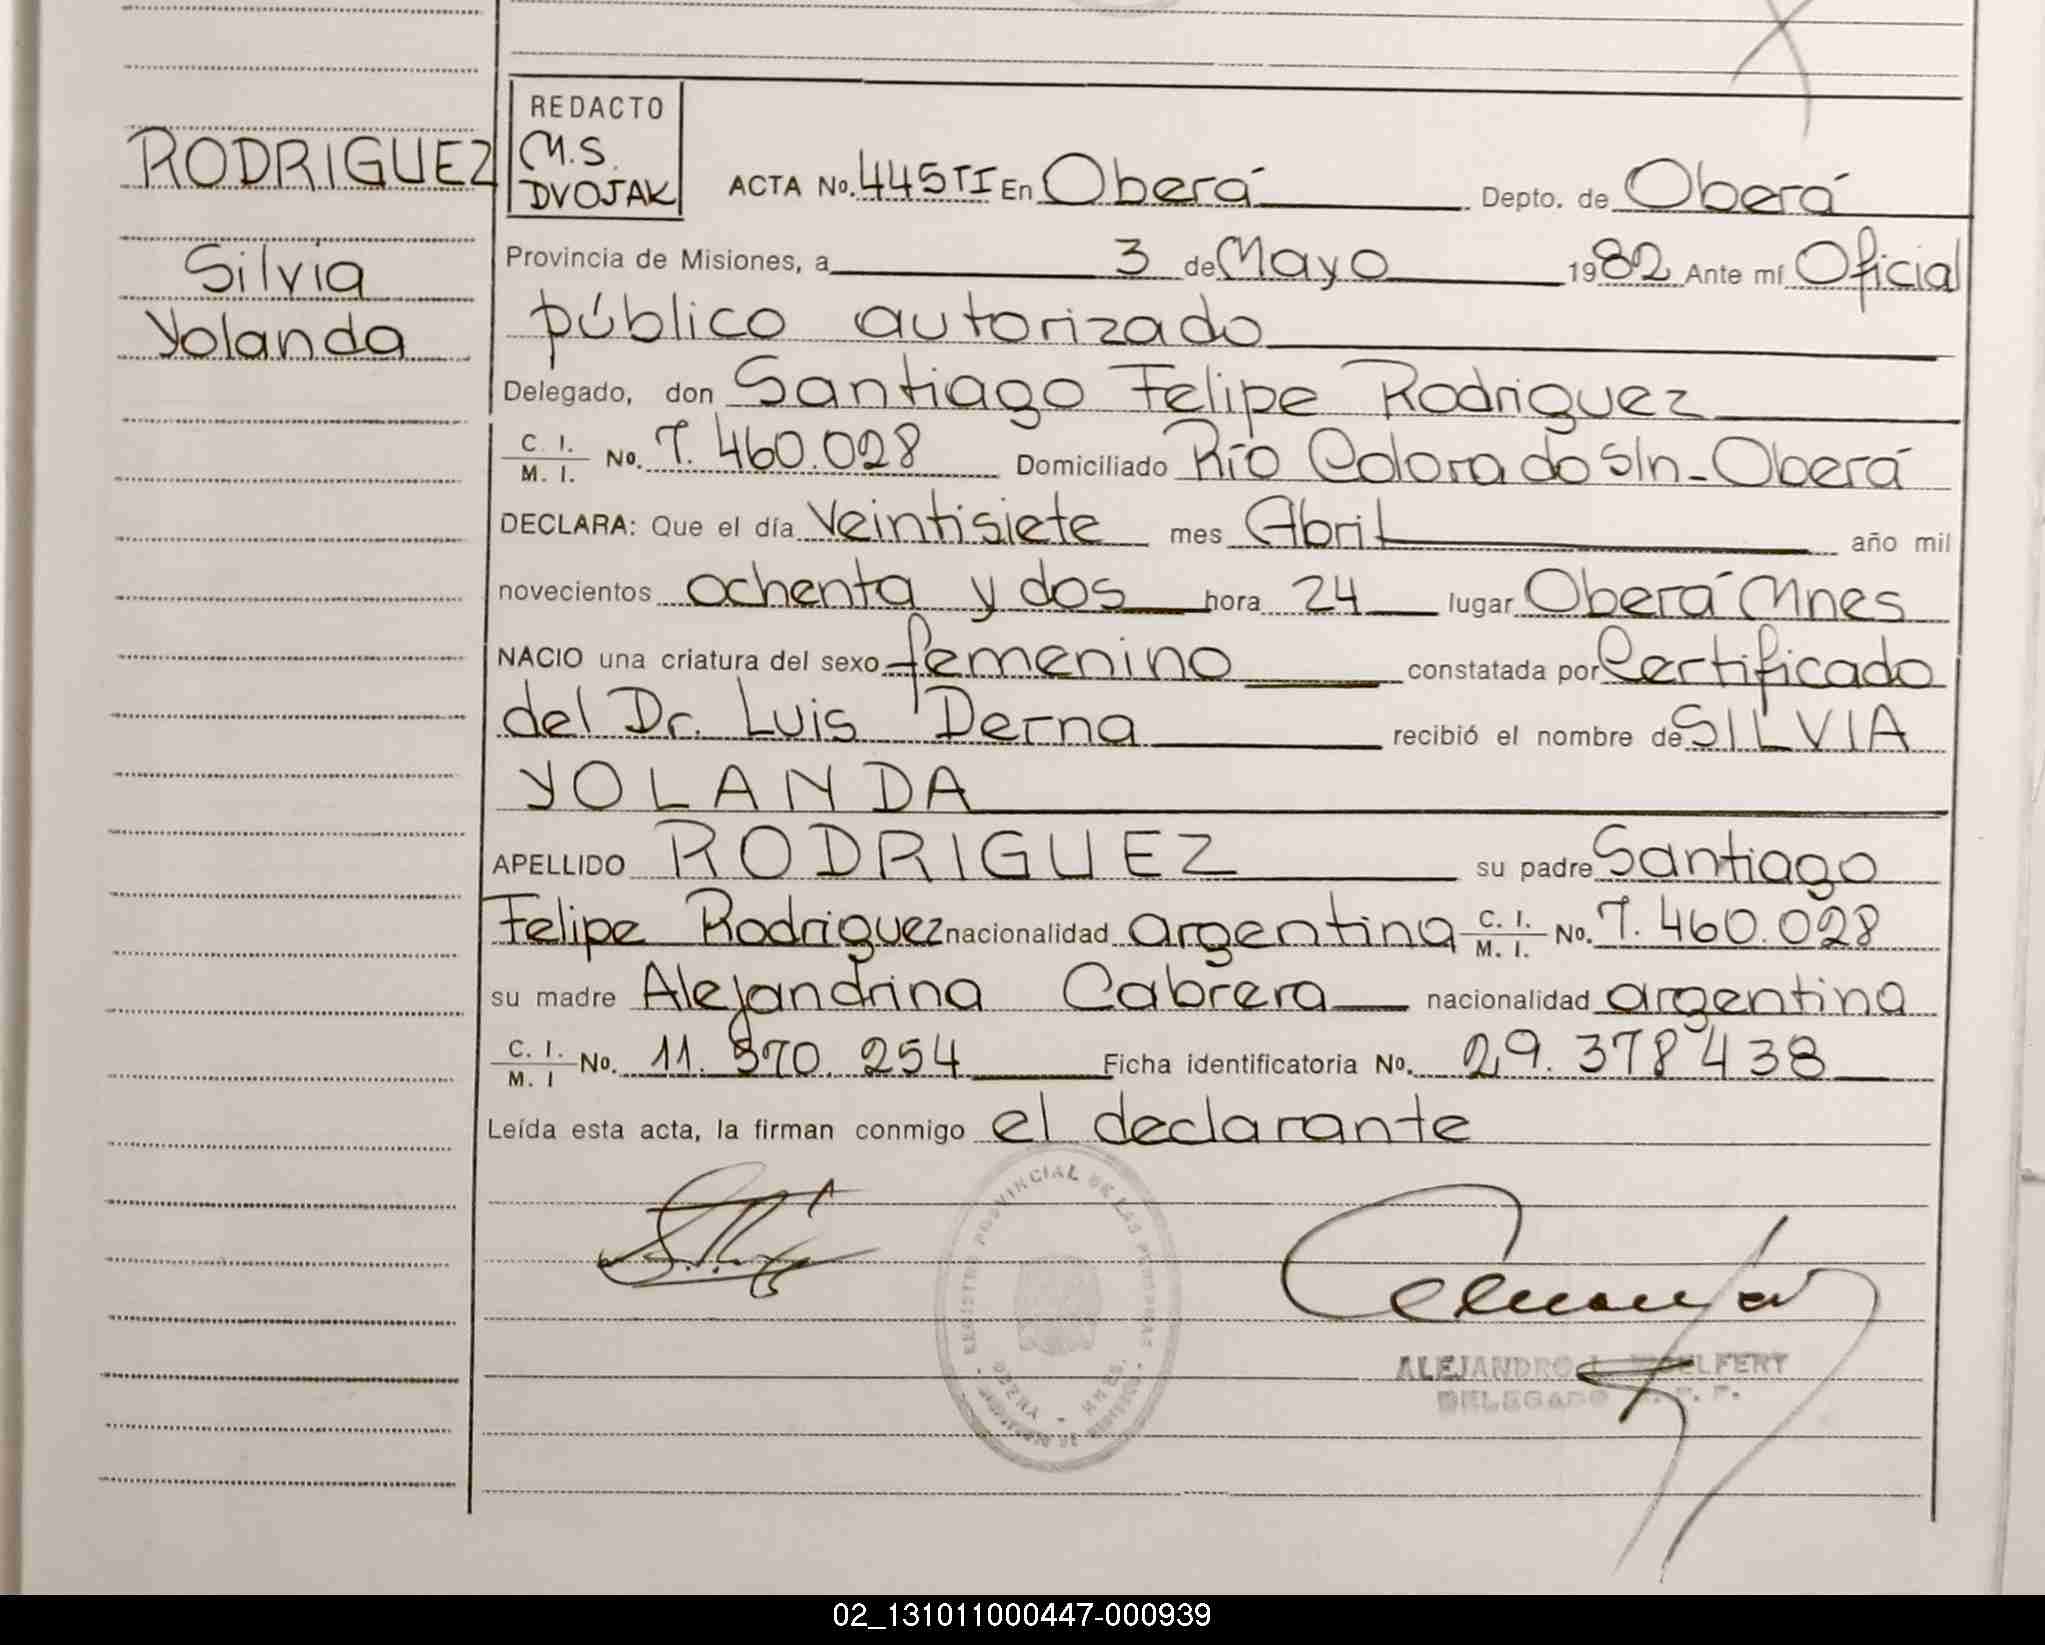 RODRIGUEZ
Silvia
Yolanda
REDACTO
M.S.
DVOJAK
ACTA No. 445 TI En Oberá Depto. de Oberá
Provincia de Misiones, a 3 de Mayo 1982 Ante mí Oficial
público autorizado
Delegado, don Santiago Felipe Rodriguez
C. I. / M. I. No. 7.460.028 Domiciliado Río Colorado s/n-Oberá
DECLARA: Que el día Veintisiete mes Abril año mil
novecientos ochenta y dos hora 24 lugar Oberá Mnes
NACIO una criatura del sexo femenino constatada por Certificado
del Dr. Luis Derna recibió el nombre de SILVIA
YOLANDA
APELLIDO RODRIGUEZ su padre Santiago
Felipe Rodriguez nacionalidad argentina C. I. / M. I. No. 7.460.028
su madre Alejandrina Cabrera nacionalidad argentina
C. I. / M. I No. 11.570.254 Ficha identificatoria No. 29.378438
Leída esta acta, la firman conmigo el declarante
REGISTRO PROVINCIAL DE LAS PERSONAS
OBERA - MNES.
ALEJANDRO
DELEGADO
02_131011000447-000939